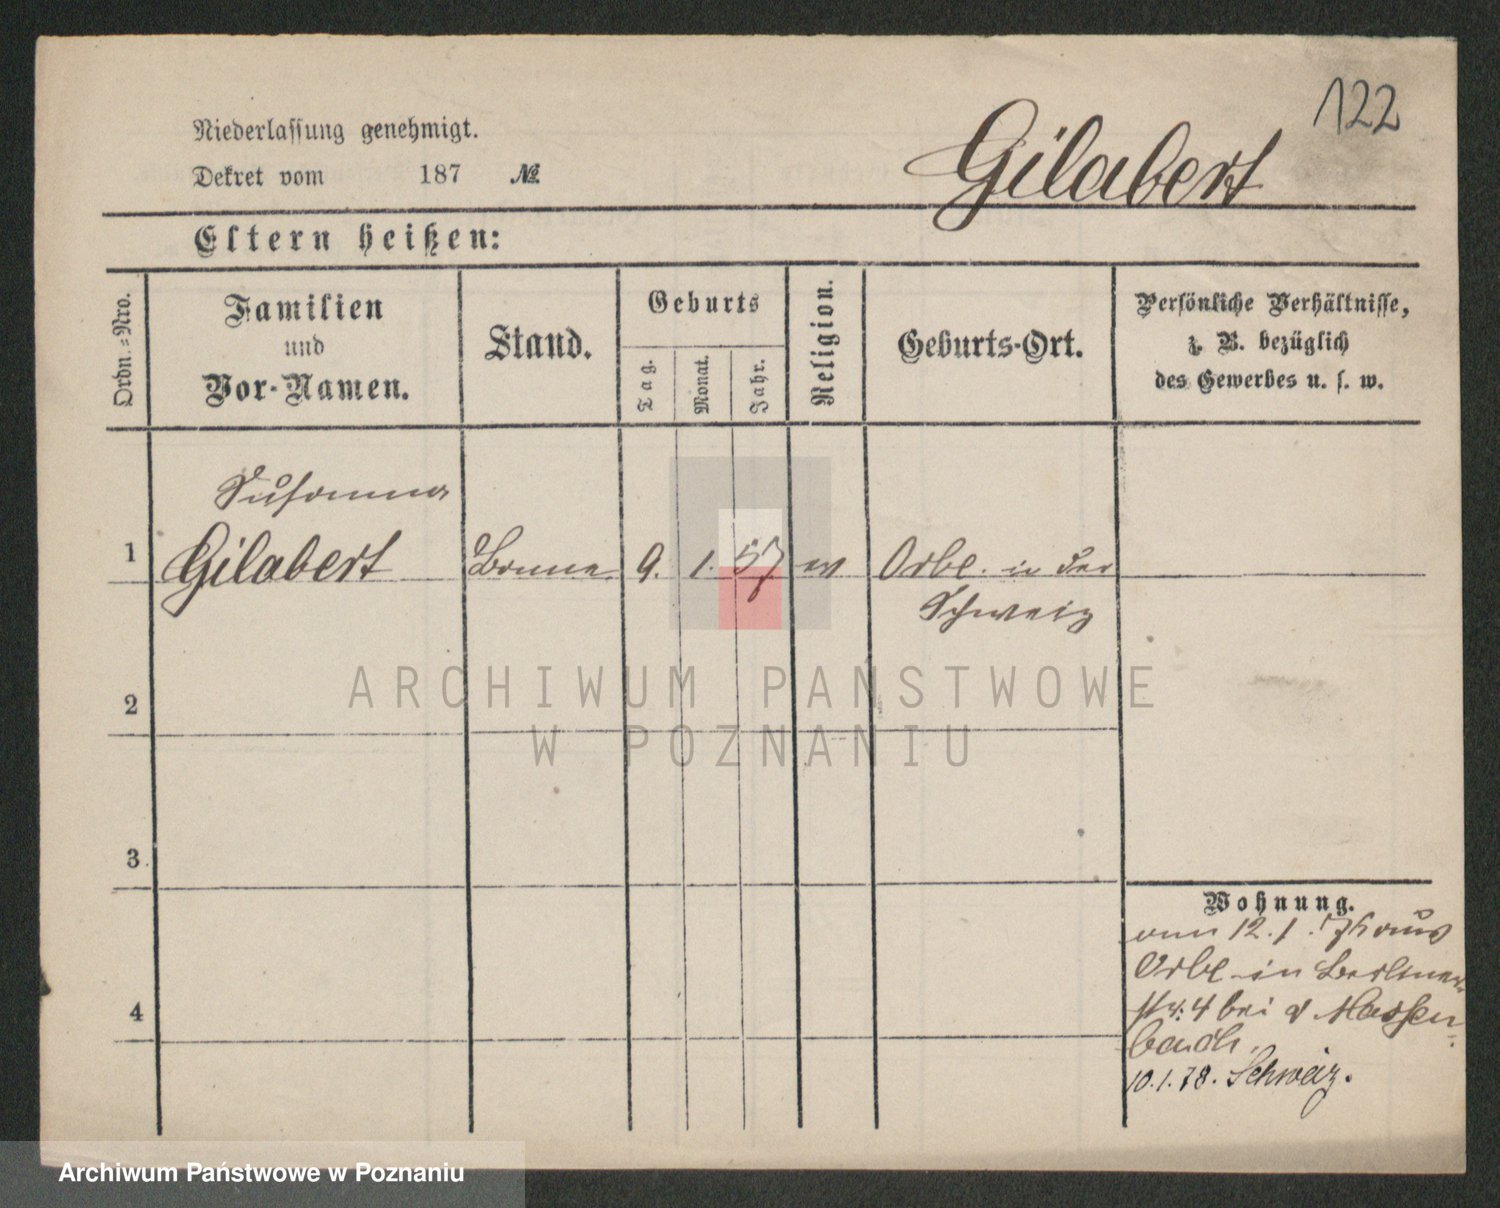 122
Gilabert
Niederlassung genehmigt.
Dekret vom 187 №
Eltern heißen:
Ordn.=Nro.
Familien
und
Vor-Namen.
Stand.
Geburts
Tag.
Monat.
Jahr.
Religion.
Geburts-Ort.
Persönliche Verhältnisse,
z. B. bezüglich
des Gewerbes u. s. w.
Susanna
1 Gilabert Bonne 9. 1. 57 Orbe. in der
Schweiz
2
3
4
ARCHIWUM PAŃSTWOWE
W POZNANIU
Wohnung.
12.1.76 aus
Orbe in Berliner
str. 4 bei v Massen
bach.
10.1.78. Schweiz.
Archiwum Państwowe w Poznaniu